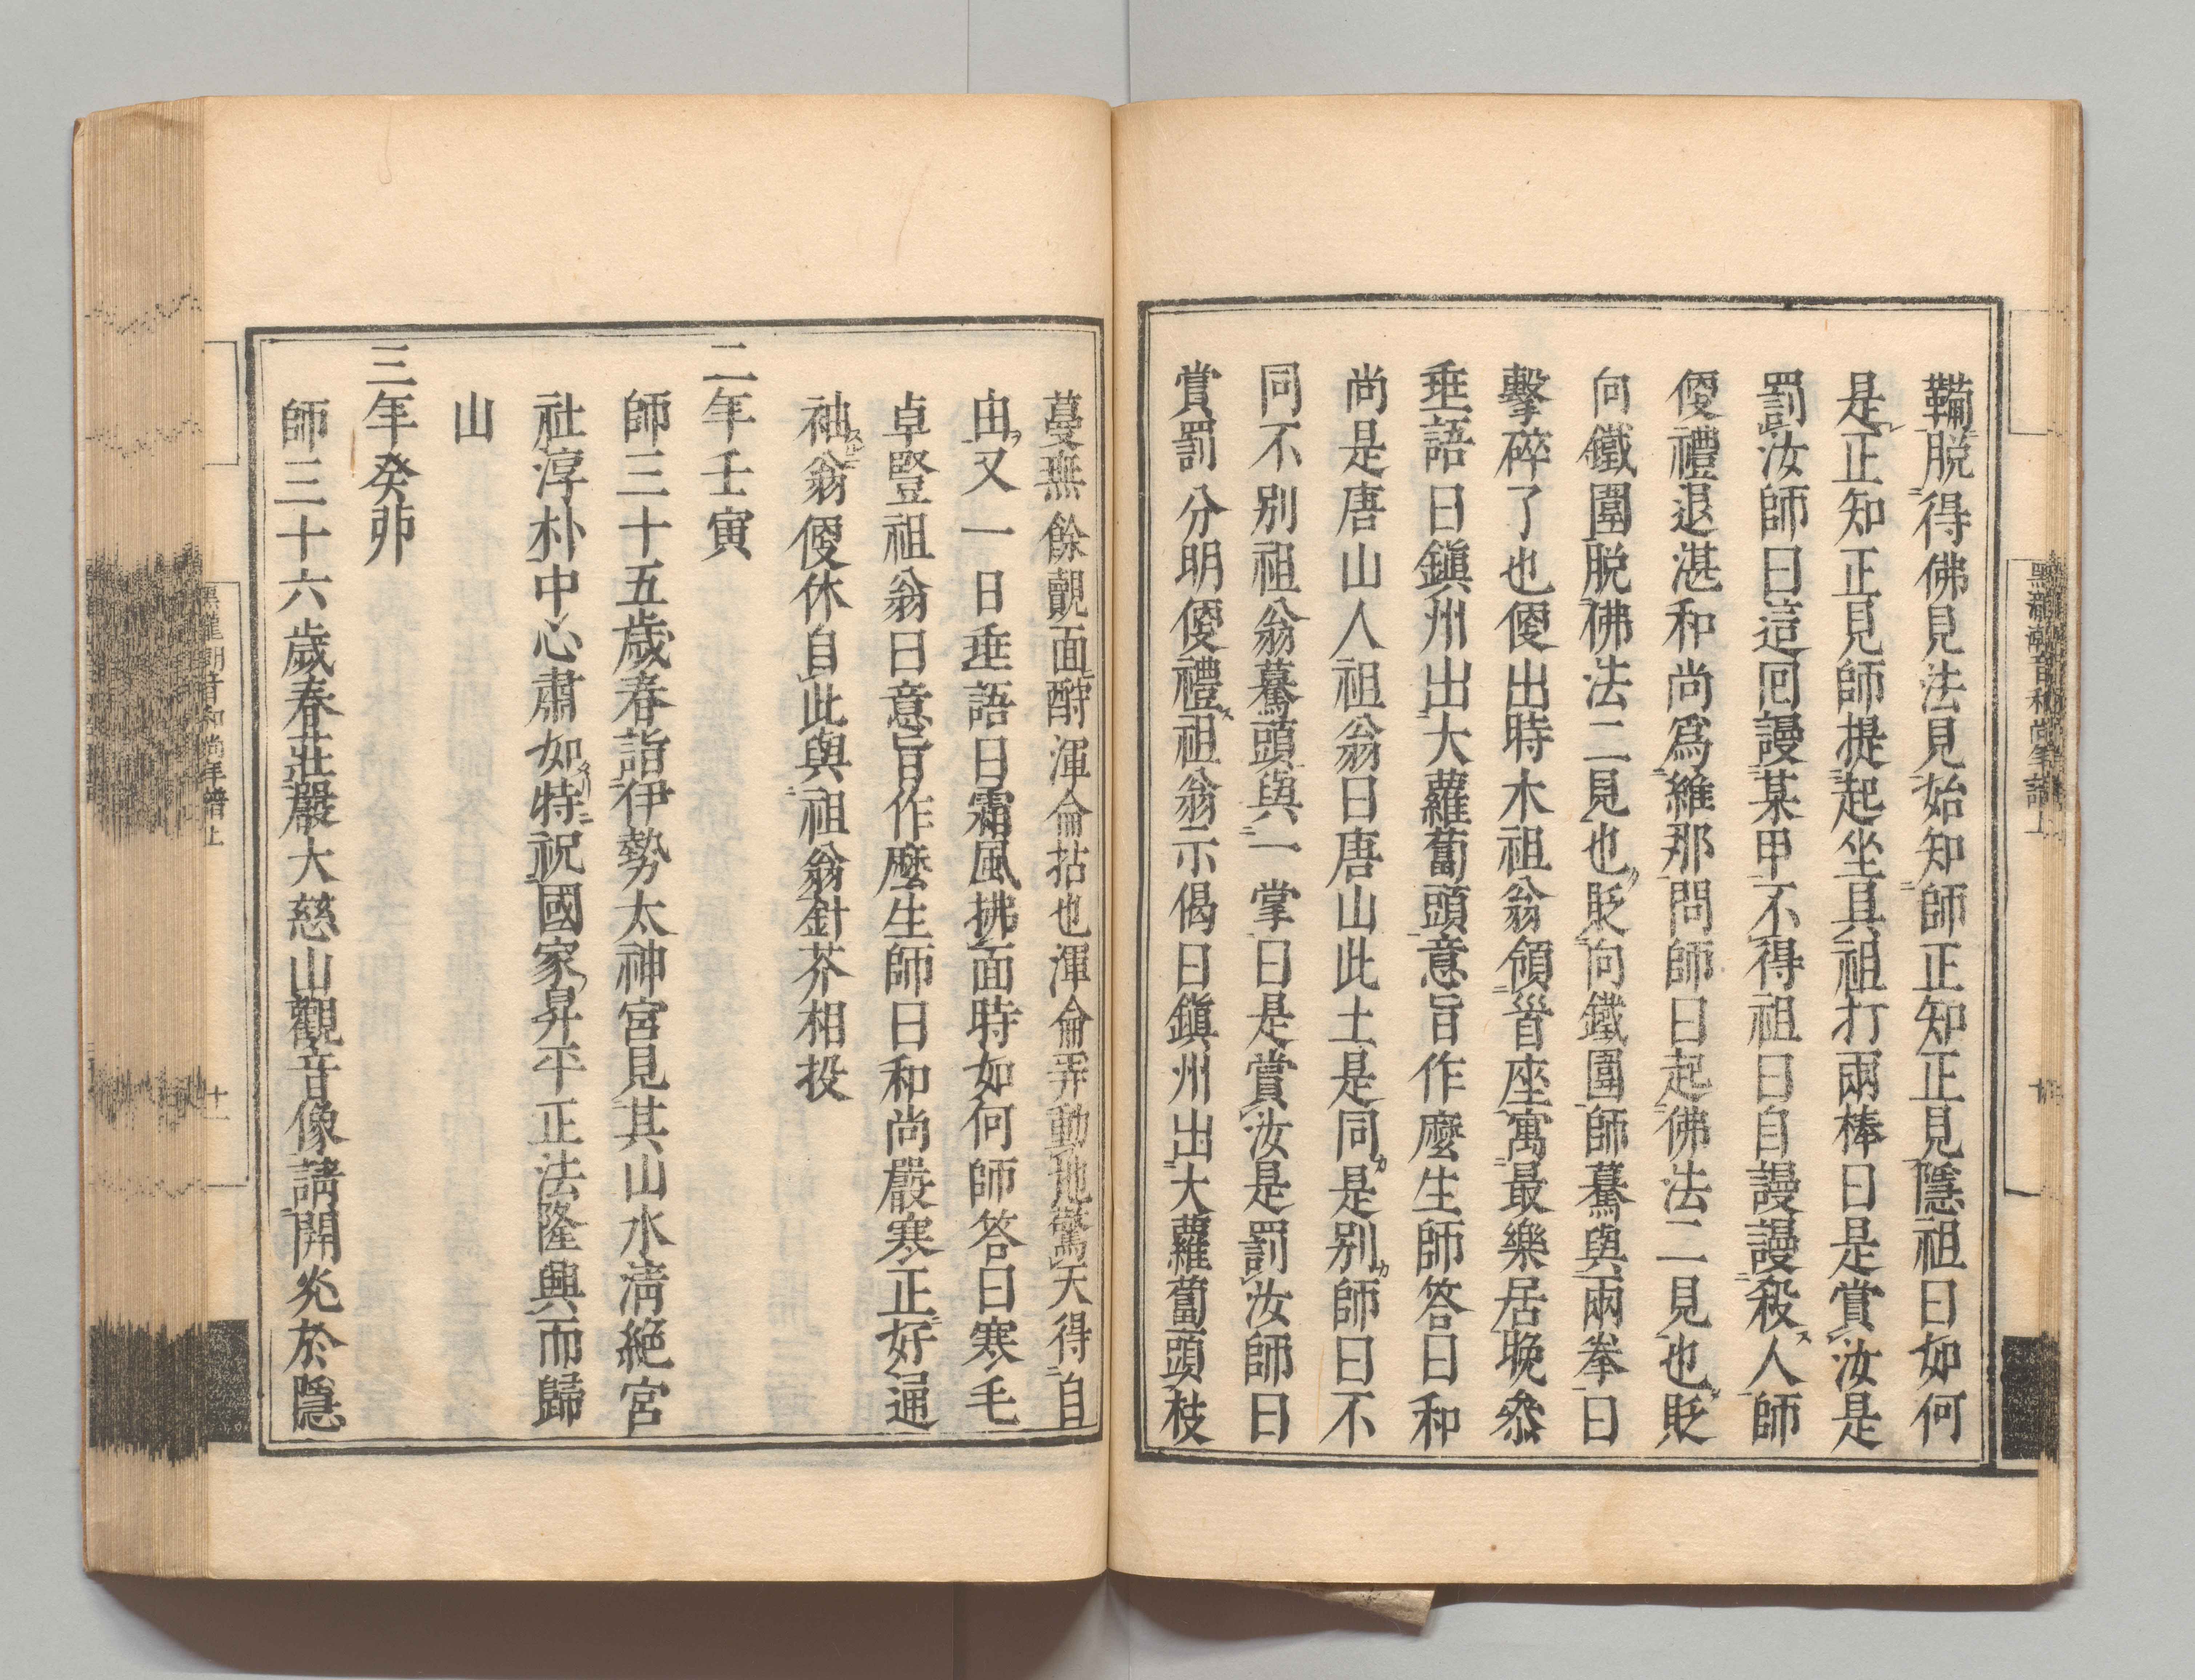 鞴脱得佛見法見始知師正知正見隱祖曰如何
是正知正見師提起坐具祖打兩棒曰是賞汝是
罰汝師曰這回謾某甲不得祖曰自謾謾殺人師
便禮退湛和尚爲維那問師曰起佛法二見也貶
向鐵圍脱佛法二見也貶向鐵圍師驀與兩拳曰
擊碎了也便出時木祖翁領首座寓最樂居晚叅
垂語曰鎮州出大蘿蔔頭意旨作麼生師答曰和
尚是唐山人祖翁曰唐山此土是同是别師曰不
同不别祖翁驀頭與一掌曰是賞汝是罰汝師曰
賞罰分明便禮祖翁示偈曰鎮州出大蘿蔔頭枝
蔓無餘覿面酧渾侖拈也渾侖弄動地驚天得自
由又一日垂語曰霜風拂面時如何師答曰寒毛
卓豎祖翁曰意旨作麼生師曰和尚嚴寒正好通
袖翁便休自此與祖翁針芥相投
二年壬寅
師三十五歲春詣伊勢太神宮見其山水清絶宮
社淳朴中心肅如特祝國家昇平正法隆興而歸
山
三年癸卯
師三十六歲春莊嚴大慈山觀音像請開光於隱
黑龍潮音和尚年譜上
十一